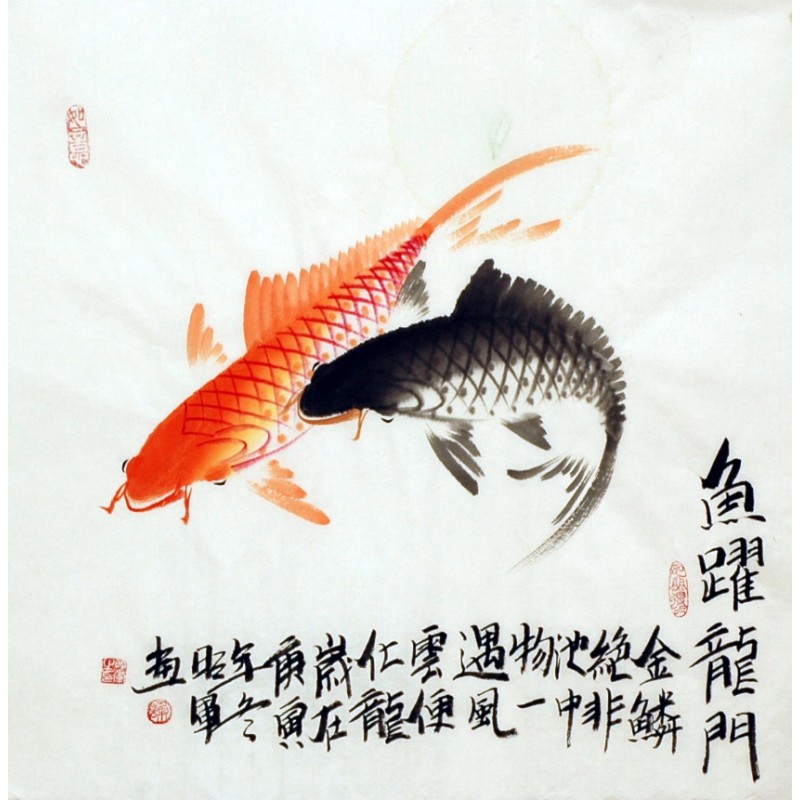 魚躍龍門
金鱗
絕非
池中
物一
遇風
雲便
化龍
歲在
庚寅
年冬
昭軍
畫
如意